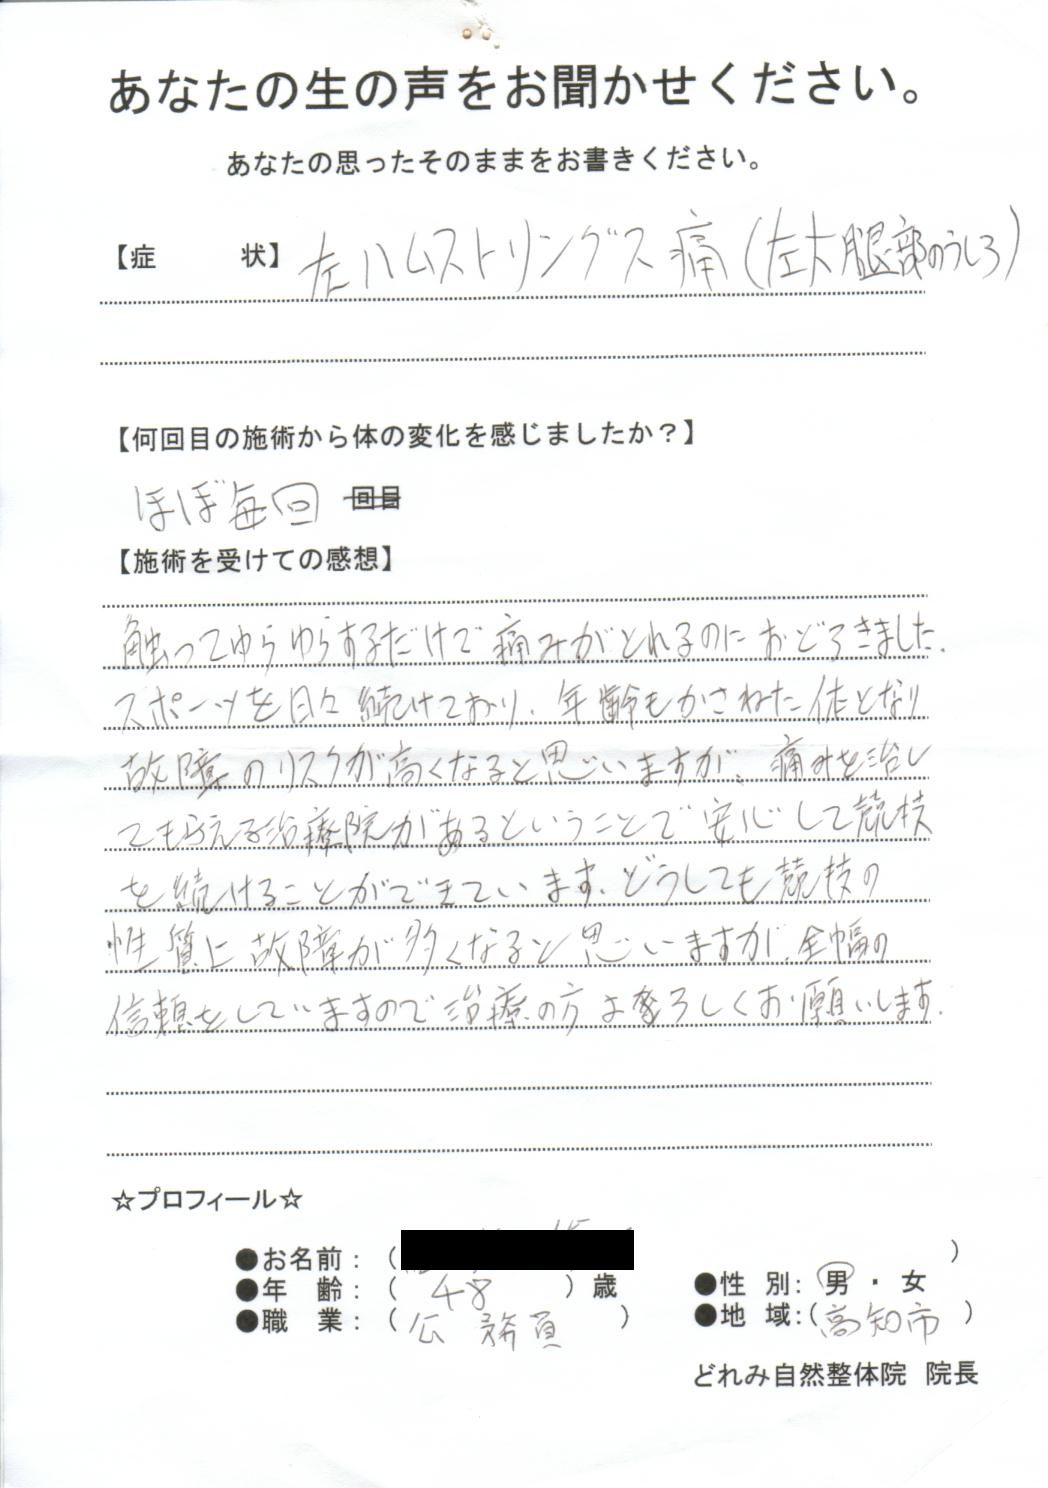 あなたの生の声をお聞かせください。
あなたの思ったそのままをお書きください。
【症　状】左ハムストリングス痛（左大腿部のうしろ）
【何回目の施術から体の変化を感じましたか？】
ほぼ毎回 回目
【施術を受けての感想】
触ってゆらゆらするだけで痛みがとれるのにおどろきました.
スポーツを日々続けており、年齢もかさねた体となり
故障のリスクが高くなると思いますが、痛みを治し
てもらえる治療院があるということで安心して競技
を続けることができています.どうしても競技の
性質上故障が多くなると思いますが、全幅の
信頼をしていますので治療の方よろしくお願いします.
☆プロフィール☆
●お名前：（　）
●年　齢：（48）歳　●性　別：男・女
●職　業：（公務員）　●地　域：（高知市）
どれみ自然整体院　院長